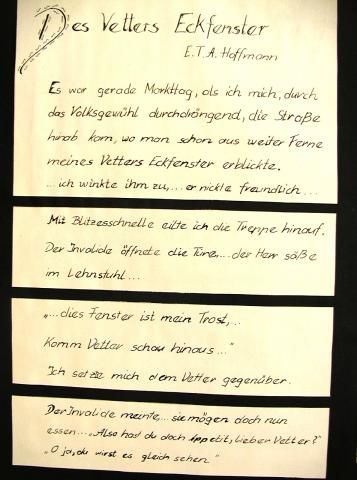 Des Vetters Eckfenster
E.T.A. Hoffmann
Es war gerade Markttag, als ich mich, durch
das Volksgewühl durchdrängend, die Straße
hinab kam, wo man schon aus weiter Ferne
meines Vetters Eckfenster erblickte.
...ich winkte ihm zu,... er nickte freundlich...
Mit Blitzesschnelle eilte ich die Treppe hinauf.
Der Invalide öffnete die Türe,... der Herr säße
im Lehnstuhl...
„...dies Fenster ist mein Trost,...
Komm Vetter schau hinaus..."
Ich setzte mich dem Vetter gegenüber.
Der Invalide meinte,... sie mögen doch nun
essen... „Also hast du doch Appetit, lieber Vetter?"
„O ja, du wirst es gleich sehen."